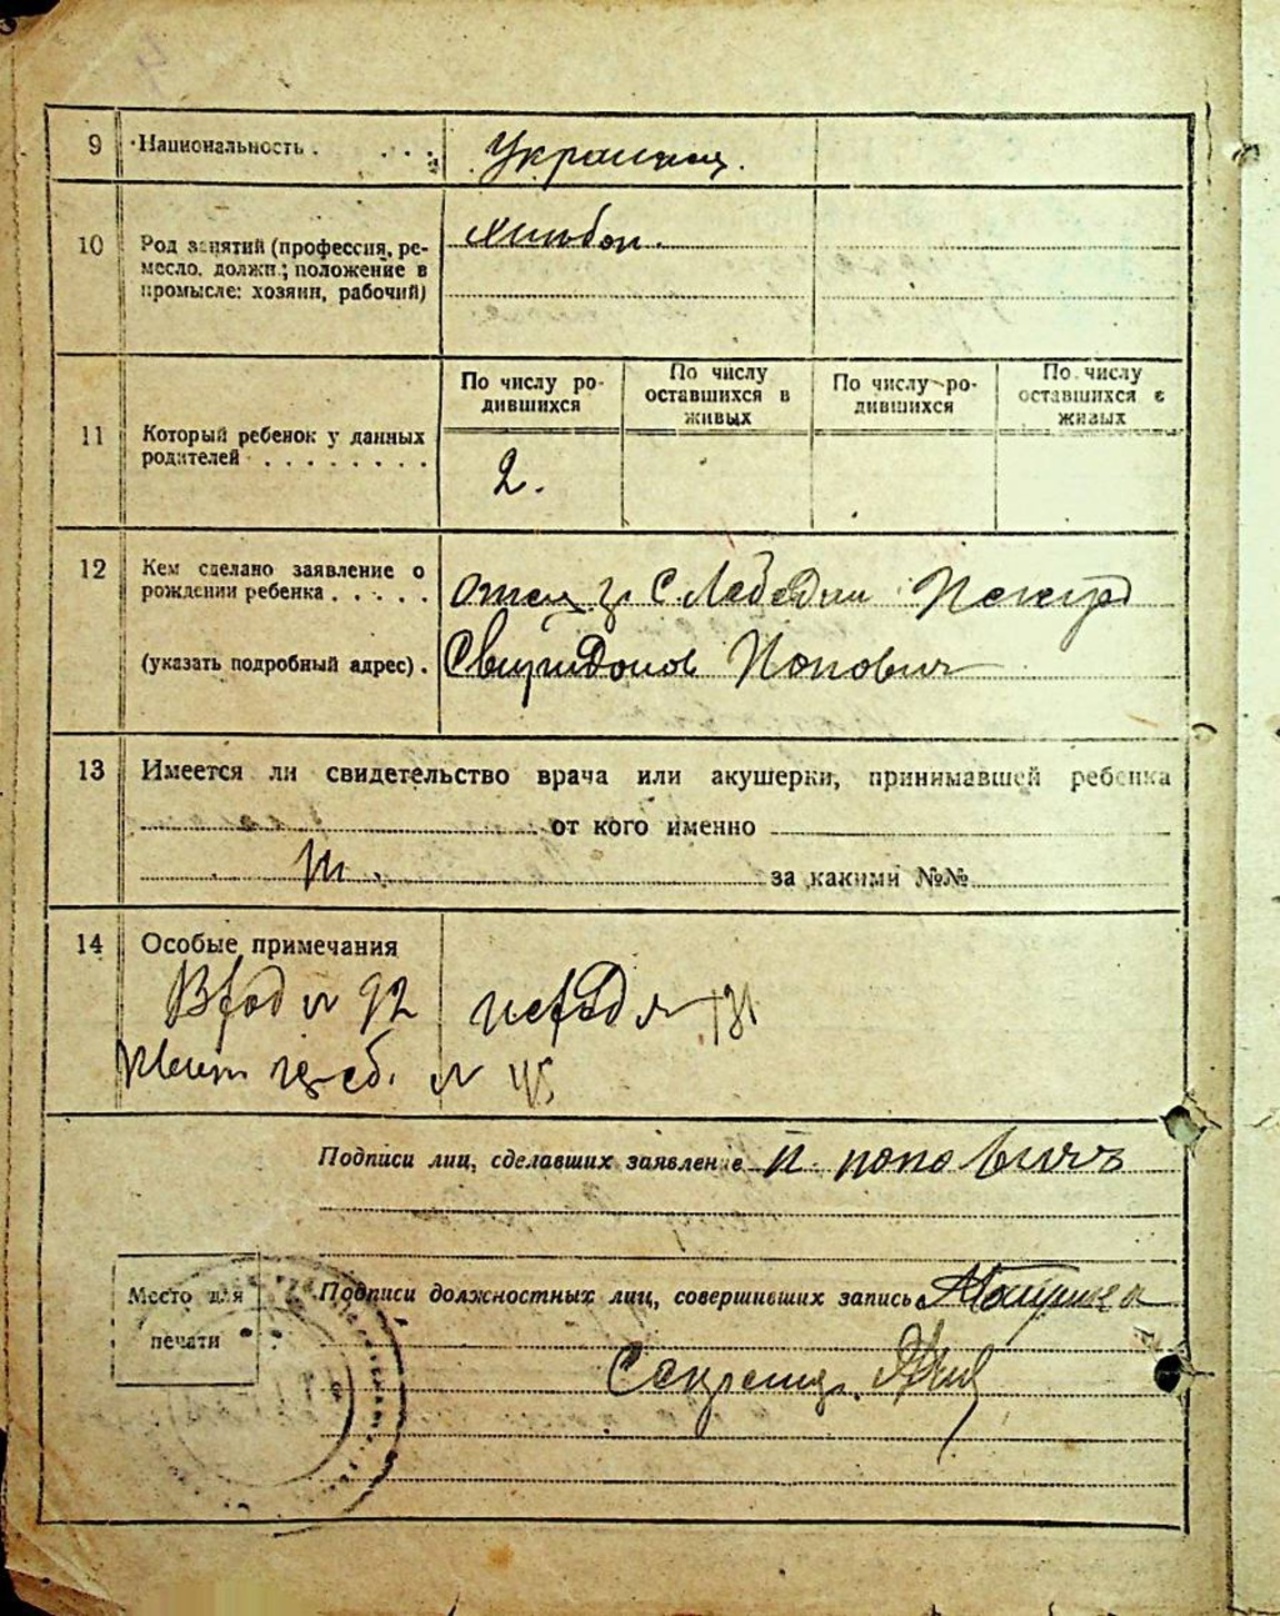 9 Национальность . . . .
Украинец.
10 Род занятий (профессия, ре-
месло, должн.; положение в
промысле: хозяин, рабочий)
хлибор.
По числу ро-
дившихся
По числу
оставшихся в
живых
По числу ро-
дившихся
По числу
оставшихся в
живых
11 Который ребенок у данных
родителей . . . . . . . .
2.
12 Кем сделано заявление о
рождении ребенка . . . . .
(указать подробный адрес) .
Отец з С. Лебедин
Свиридонов Попович
13 Имеется ли свидетельство врача или акушерки, принимавшей ребенка
от кого именно
за какими №№
14 Особые примечания
№ 92
№ 45
Подписи лиц, сделавших заявление П. Поповичъ
Место для
печати
Подписи должностных лиц, совершивших запись
Секретар